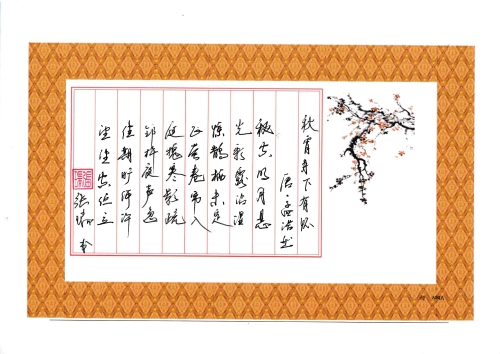 秋宵月下有怀
唐·孟浩然
秋空明月悬
光彩露沾湿
惊鹊栖未定
飞萤卷帘入
庭槐寒影疏
邻杵夜声急
佳期旷何许
望望空伫立